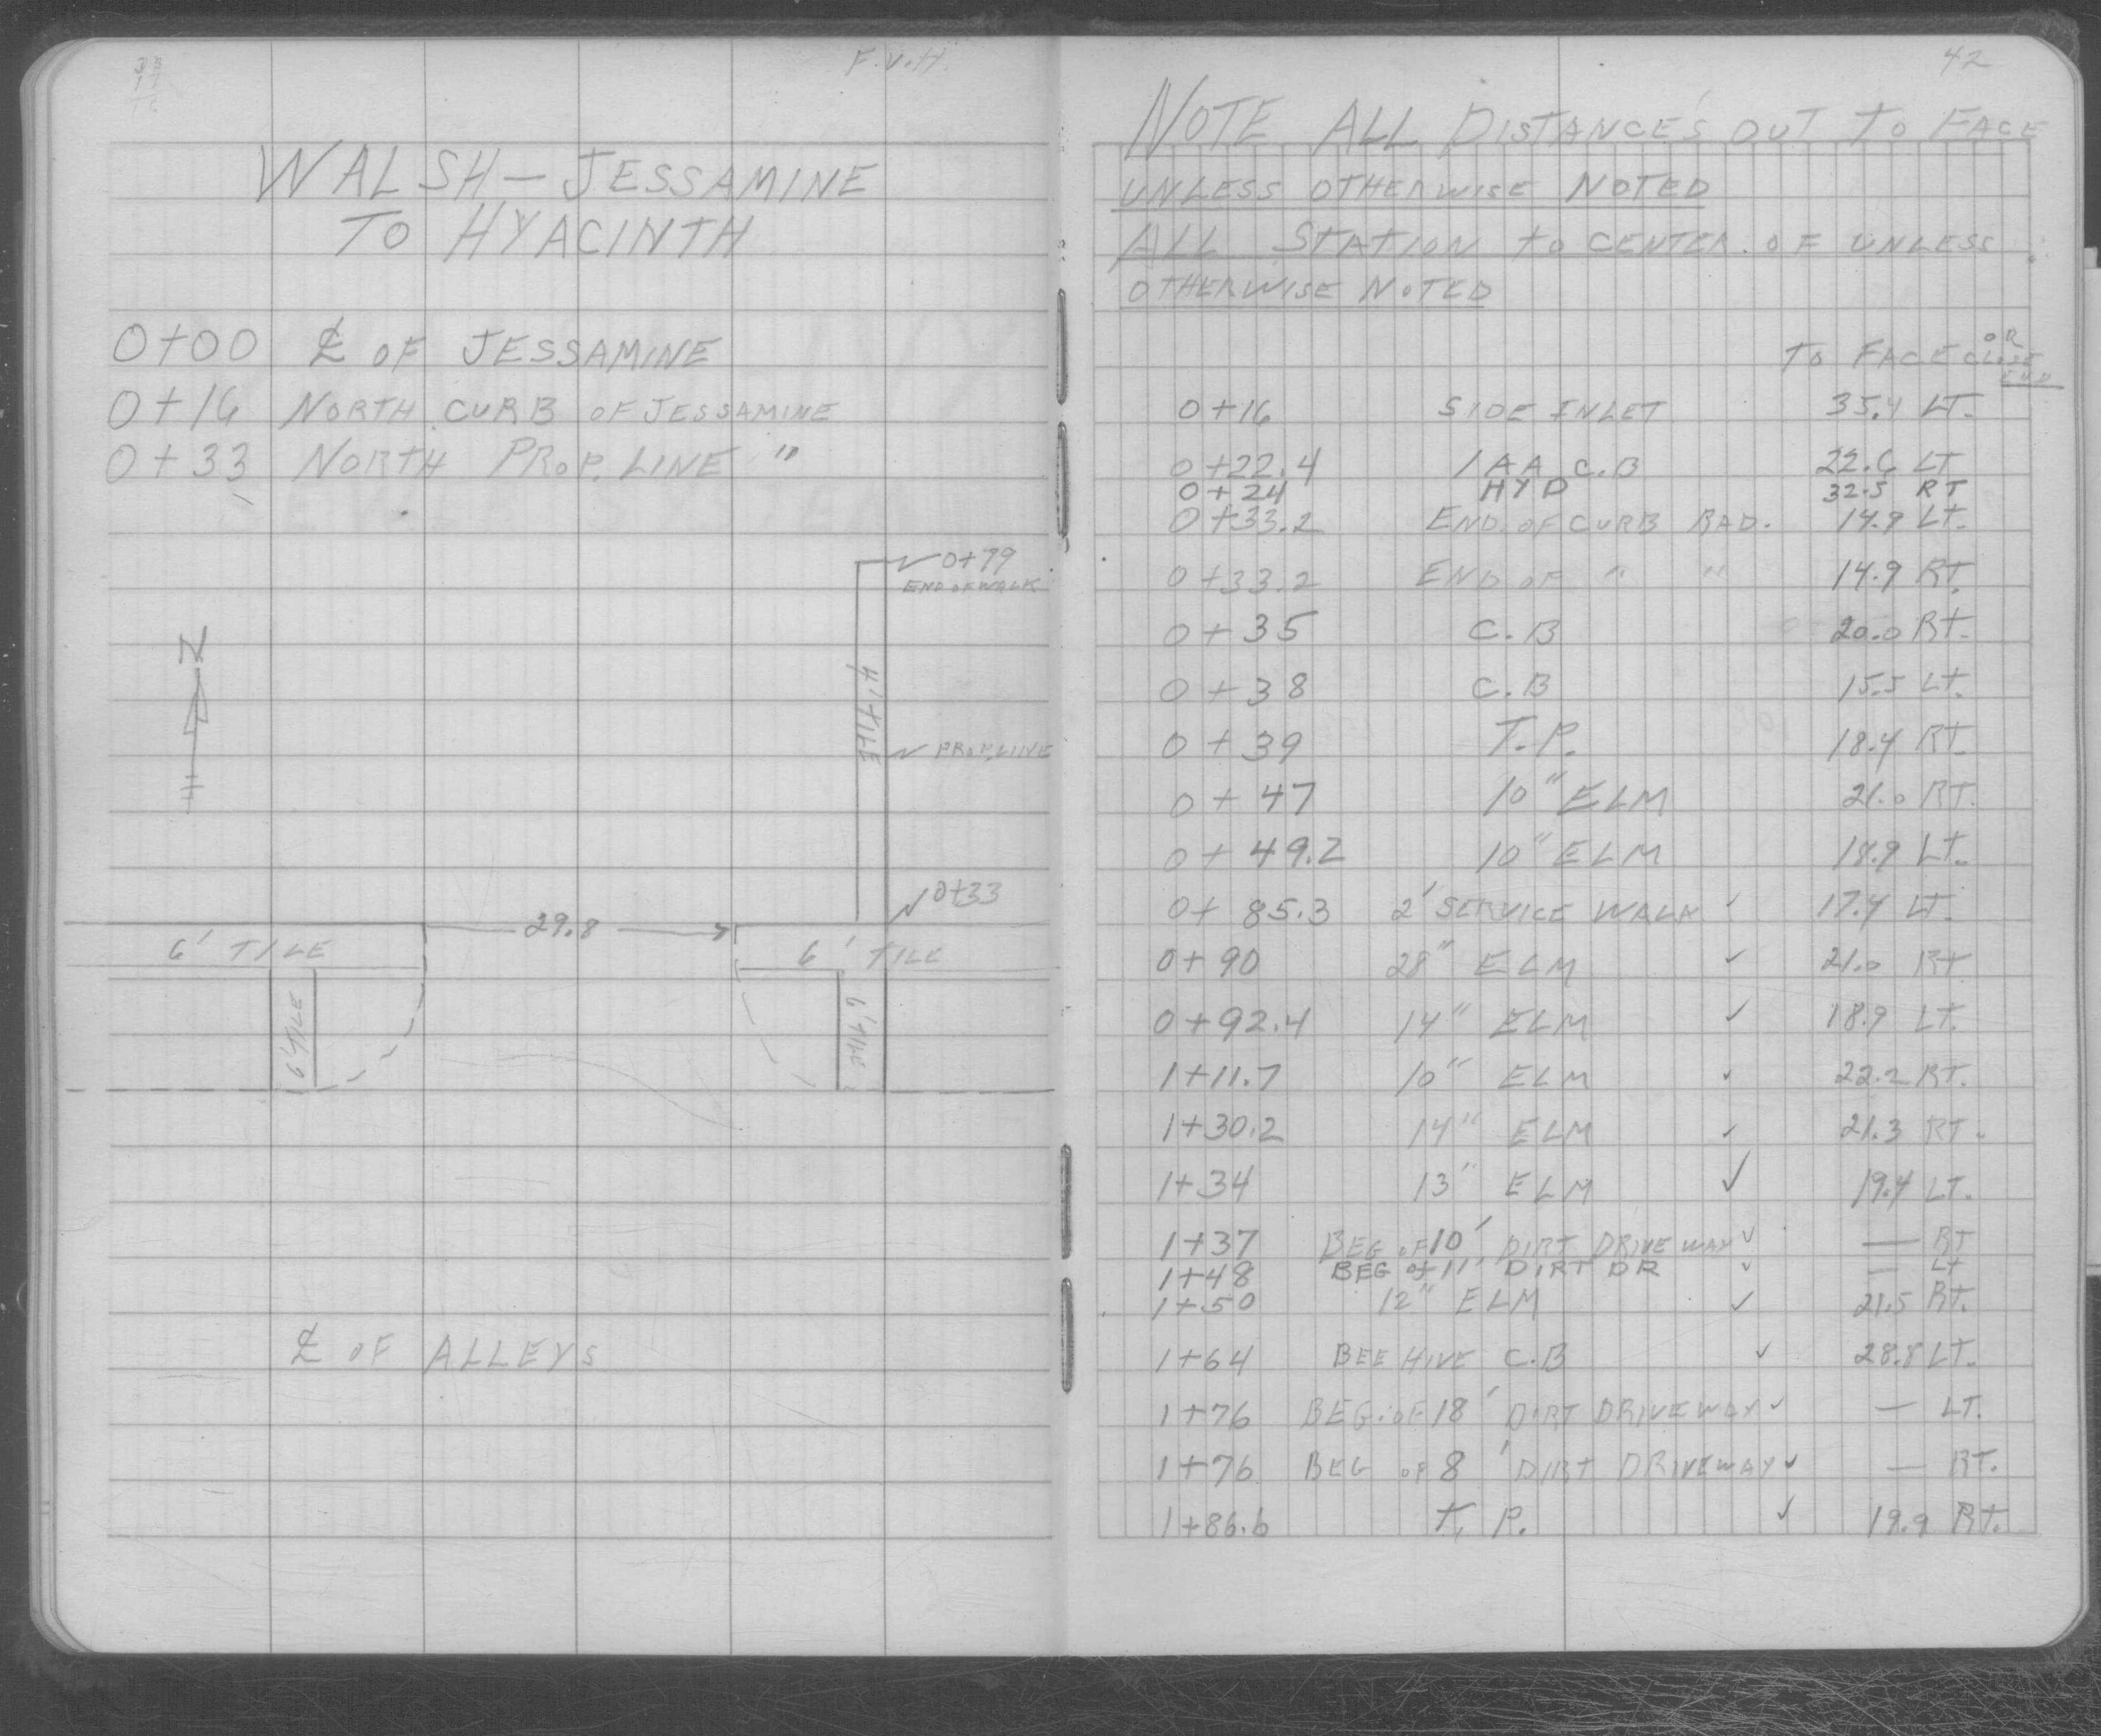 F.V.H.
WALSH — JESSAMINE
TO HYACINTH
0+00 ℄ OF JESSAMINE
0+16 NORTH CURB OF JESSAMINE
0+33 NORTH PROP. LINE "
0+79
END OF WALK
N
4' TILE
PROP. LINE
0+33
29.8
6' TILE
6' TILE
6' TILE
6' TILE
℄ OF ALLEYS
42
NOTE ALL DISTANCES OUT TO FACE
UNLESS OTHERWISE NOTED
ALL STATION TO CENTER OF UNLESS
OTHERWISE NOTED
TO FACE OR CLOSE END
0+16 SIDE INLET 35.4 LT.
0+22.4 1AA C.B 22.6 LT
0+24 HYD 32.5 RT
0+33.2 END OF CURB RAD. 14.9 LT.
0+33.2 END OF " " 14.9 RT.
0+35 C.B 20.0 RT.
0+38 C.B 15.5 LT.
0+39 T.P. 18.4 RT.
0+47 10" ELM 21.0 RT.
0+49.2 10" ELM 18.9 LT.
0+85.3 2' SERVICE WALK ✓ 17.4 LT.
0+90 28" ELM ✓ 21.0 RT
0+92.4 14" ELM ✓ 18.9 LT.
1+11.7 10" ELM ✓ 22.2 RT.
1+30.2 14" ELM ✓ 21.3 RT.
1+34 13" ELM ✓ 19.4 LT.
1+37 BEG OF 10' DIRT DRIVEWAY ✓ — RT
1+48 BEG of 11' DIRT DR ✓ — LT
1+50 12" ELM ✓ 21.5 RT.
1+64 BEE HIVE C.B ✓ 28.8 LT.
1+76 BEG. OF 18' DIRT DRIVEWAY ✓ — LT.
1+76 BEG OF 8' DIRT DRIVEWAY ✓ — RT.
1+86.6 T. P. ✓ 19.9 RT.